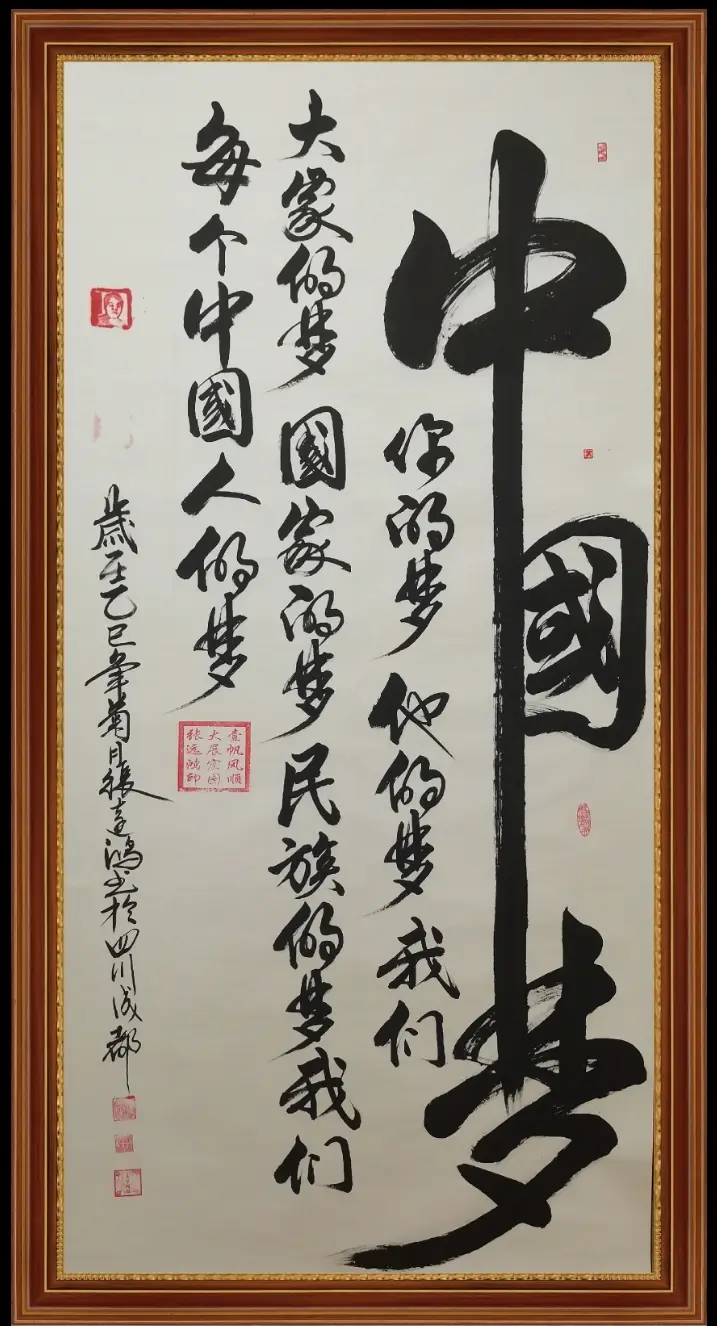 中國梦
你的梦 他的梦 我们
大家的梦 國家的梦 民族的梦 我们
每个中國人的梦
壹帆风順
大展宏图
张远鸿印
歲在乙巳年菊月張远鸿书於四川成都